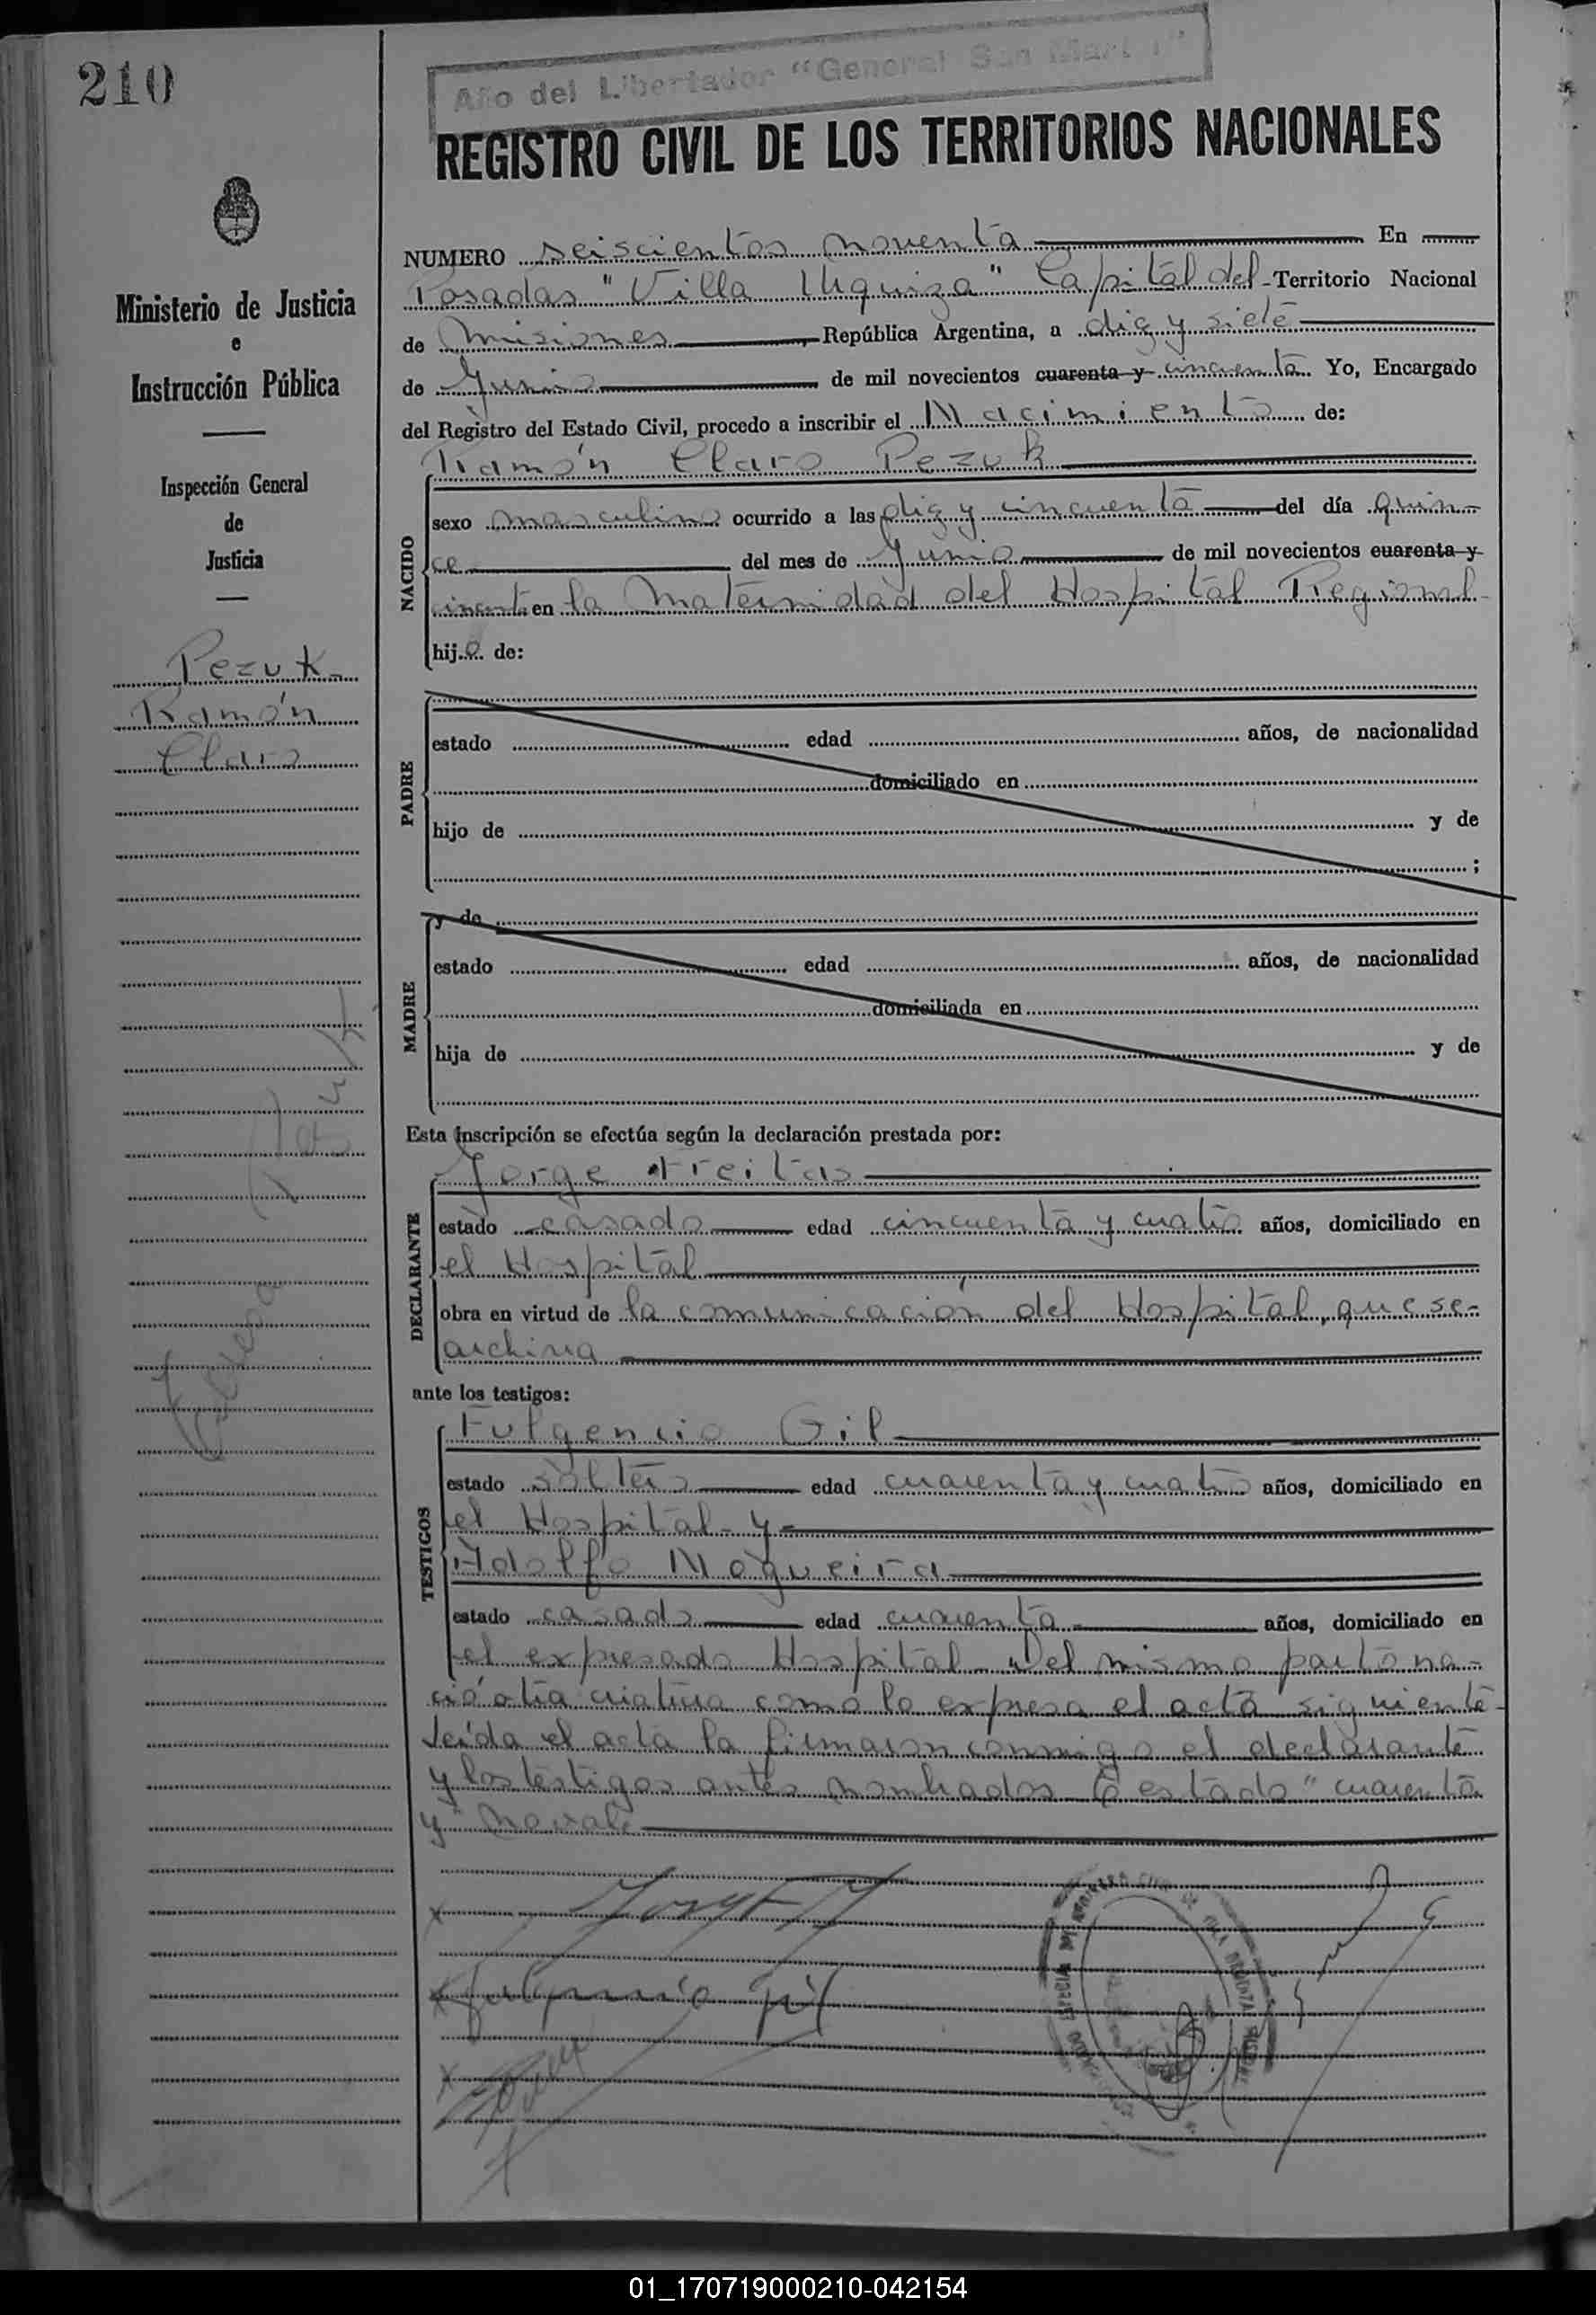 210
Año del Libertador "General San Martín"
REGISTRO CIVIL DE LOS TERRITORIOS NACIONALES
Ministerio de Justicia
e
Instrucción Pública
Inspección General
de
Justicia
Pezuk
Ramón
Claro
NUMERO seiscientos noventa En
Posadas "Villa Urquiza" Capital del Territorio Nacional
de Misiones, República Argentina, a diez y siete
de Junio de mil novecientos cuarenta y cincuenta. Yo, Encargado
del Registro del Estado Civil, procedo a inscribir el Nacimiento de:
Ramón Claro Pezuk
NACIDO
sexo masculino ocurrido a las diez y cincuenta del día quin-
ce del mes de Junio de mil novecientos cuarenta y
cincuenta en la Maternidad del Hospital Regional
hijo de:
PADRE
estado edad años, de nacionalidad
domiciliado en
hijo de y de
;
MADRE
y de
estado edad años, de nacionalidad
domiciliada en
hija de y de
Esta inscripción se efectúa según la declaración prestada por:
DECLARANTE
Jorge Freitas
estado casado edad cincuenta y cuatro años, domiciliado en
el Hospital
obra en virtud de la comunicación del Hospital, que se
archiva
ante los testigos:
TESTIGOS
Fulgencio Gil
estado soltero edad cuarenta y cuatro años, domiciliado en
el Hospital y
Adolfo Nogueira
estado casado edad cuarenta años, domiciliado en
el expresado Hospital. Del mismo parto na-
ció otra criatura como lo expresa el acta siguiente
Leída el acta la firmaron conmigo el declarante
y los testigos antes nombrados estado "cuarenta
y" no vale
Fulgencio Gil
01_170719000210-042154